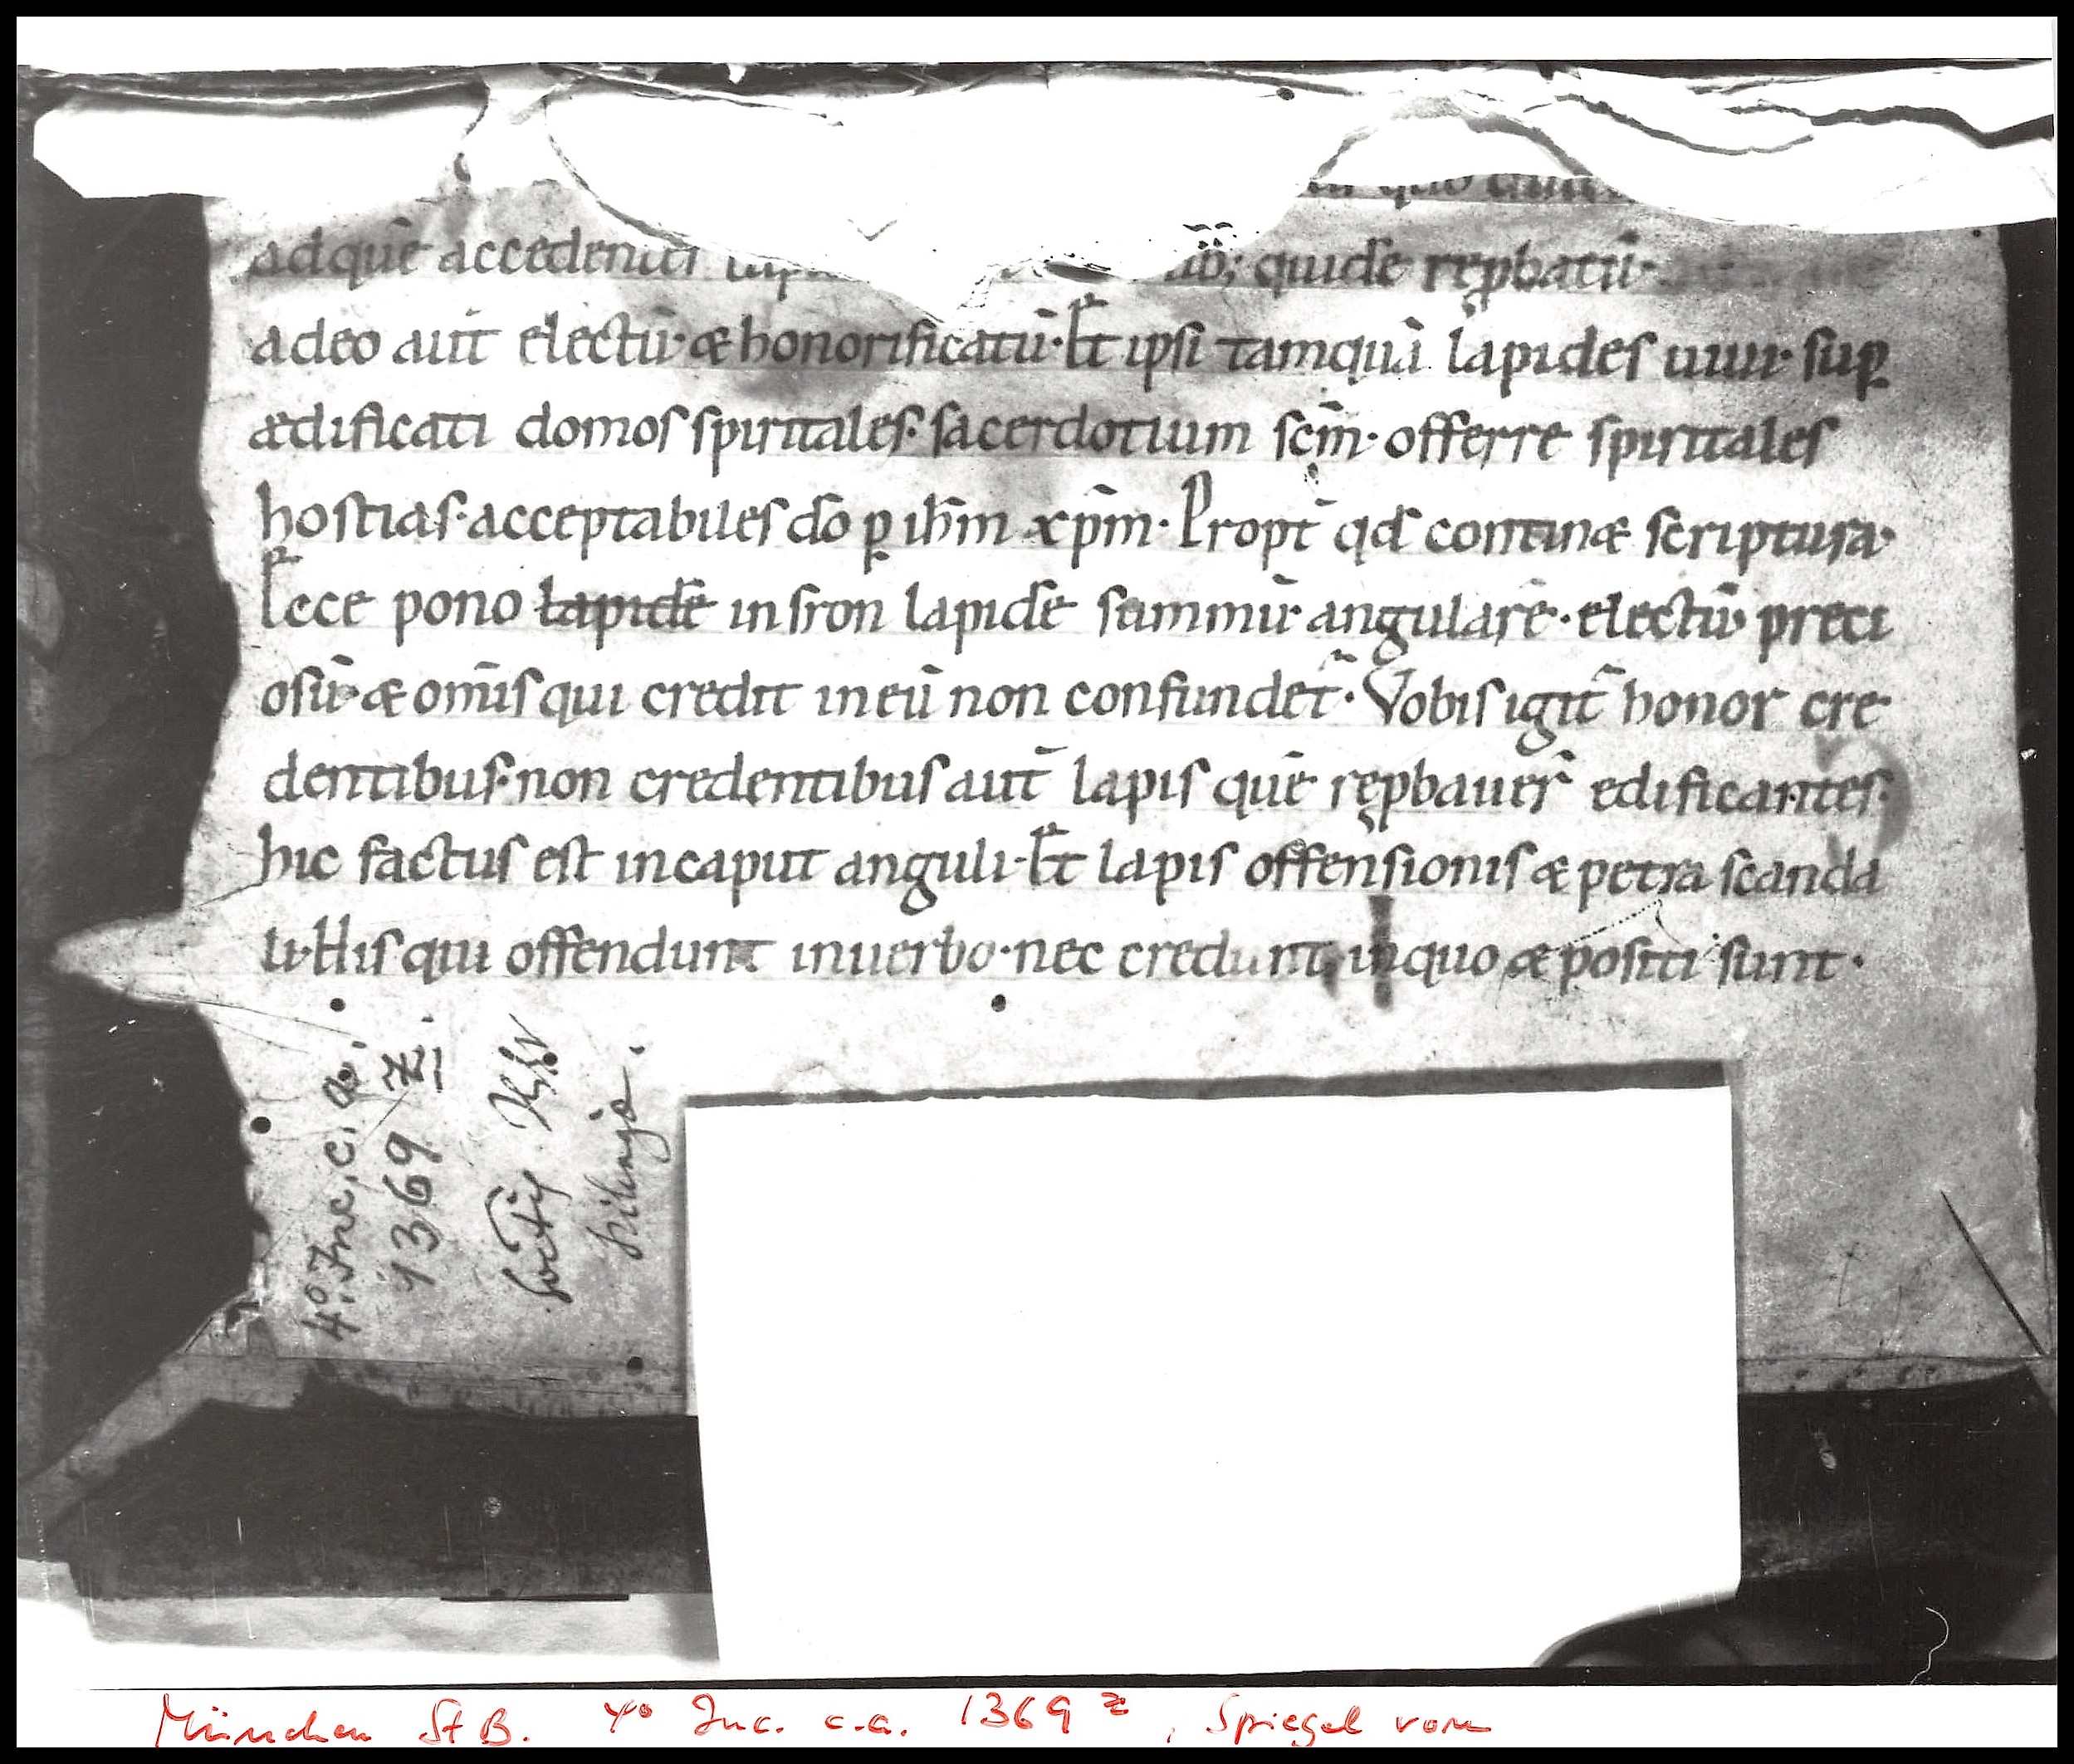 quo
adquē accedentes ib; quidē rep̱batū·
adeo aut̄ electū· & honorificatū· Et ipsi tamquā lapides uiui· suꝑ
ædificati domos spiritales· sacerdotium scm̄· offerre spiritales
hostias· acceptabiles dō ꝑ ihm̄ xpm̄· Propt̄ qd̄ contin& scriptura·
Ecce pono lapidē insion lapidē summū· angularē· electū· preci
osū· & om̄is qui credit ineū non confundet̄· Vobis igit̄ honor cre
dentibus· non credentibus aut̄ lapis quē reꝓbauer̄ edificantes·
hic factus est incaput anguli· Et lapis offensionis & petra scanda
li· His qui offendunt inuerbo· nec credunt, inquo & positi sunt·
4° Inc. c. a.
1369 z
München StB. 4° Inc. c.a. 1369 z, Spiegel vorn